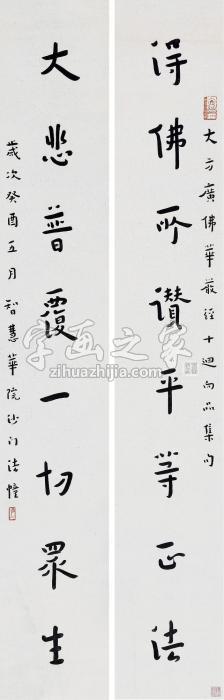 大方廣佛華嚴經十迴向品集句
得佛所讚平等正法
大悲普覆一切眾生
歲次癸酉五月智慧華院沙门法幢
字画之家
zihuazhijia.com